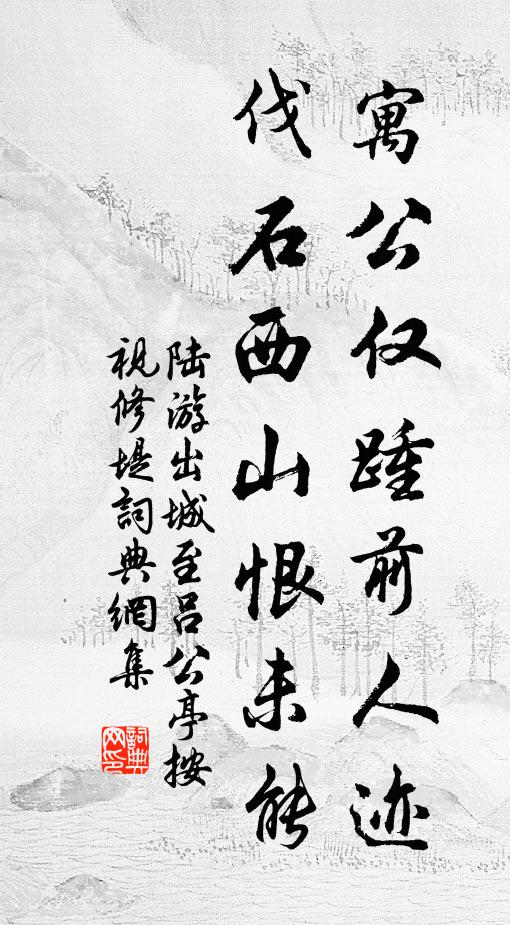 寓公仅踵前人迹
伐石西山恨未能
陆游出城至吕公亭按
视修堤词典網集
詞典網印